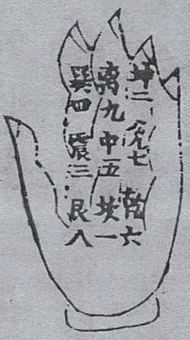 坤二兑七乾六
离九中五坎一
巽四震三艮八